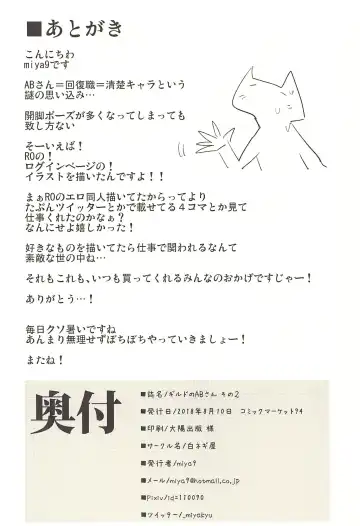 ■あとがき
こんにちわ
miya9です
ABさん＝回復職＝清楚キャラという
謎の思い込み…
開脚ポーズが多くなってしまっても
致し方ない
そーいえば！
ROの！
ログインページの！
イラストを描いたんですよ！！
まぁROのエロ同人描いてたからってより
たぶんツイッターとかで載せてる４コマとか見て
仕事くれたのかなぁ？
なんにせよ嬉しかった！
好きなものを描いてたら仕事で関われるなんて
素敵な世の中ね…
それもこれも、いつも買ってくれるみんなのおかげですじゃー！
ありがとう…！
毎日クソ暑いですね
あんまり無理せずぼちぼちやっていきましょー！
またね！
奥付
■誌名/ギルドのABさん その2
■発行日/2018年8月10日 コミックマーケット94
■印刷/大陽出版 様
■サークル名/白ネギ屋
■発行者/miya9
■メール/miya9@hotmail.co.jp
■Pixiv/id=170090
■ツイッター/_miyakyu